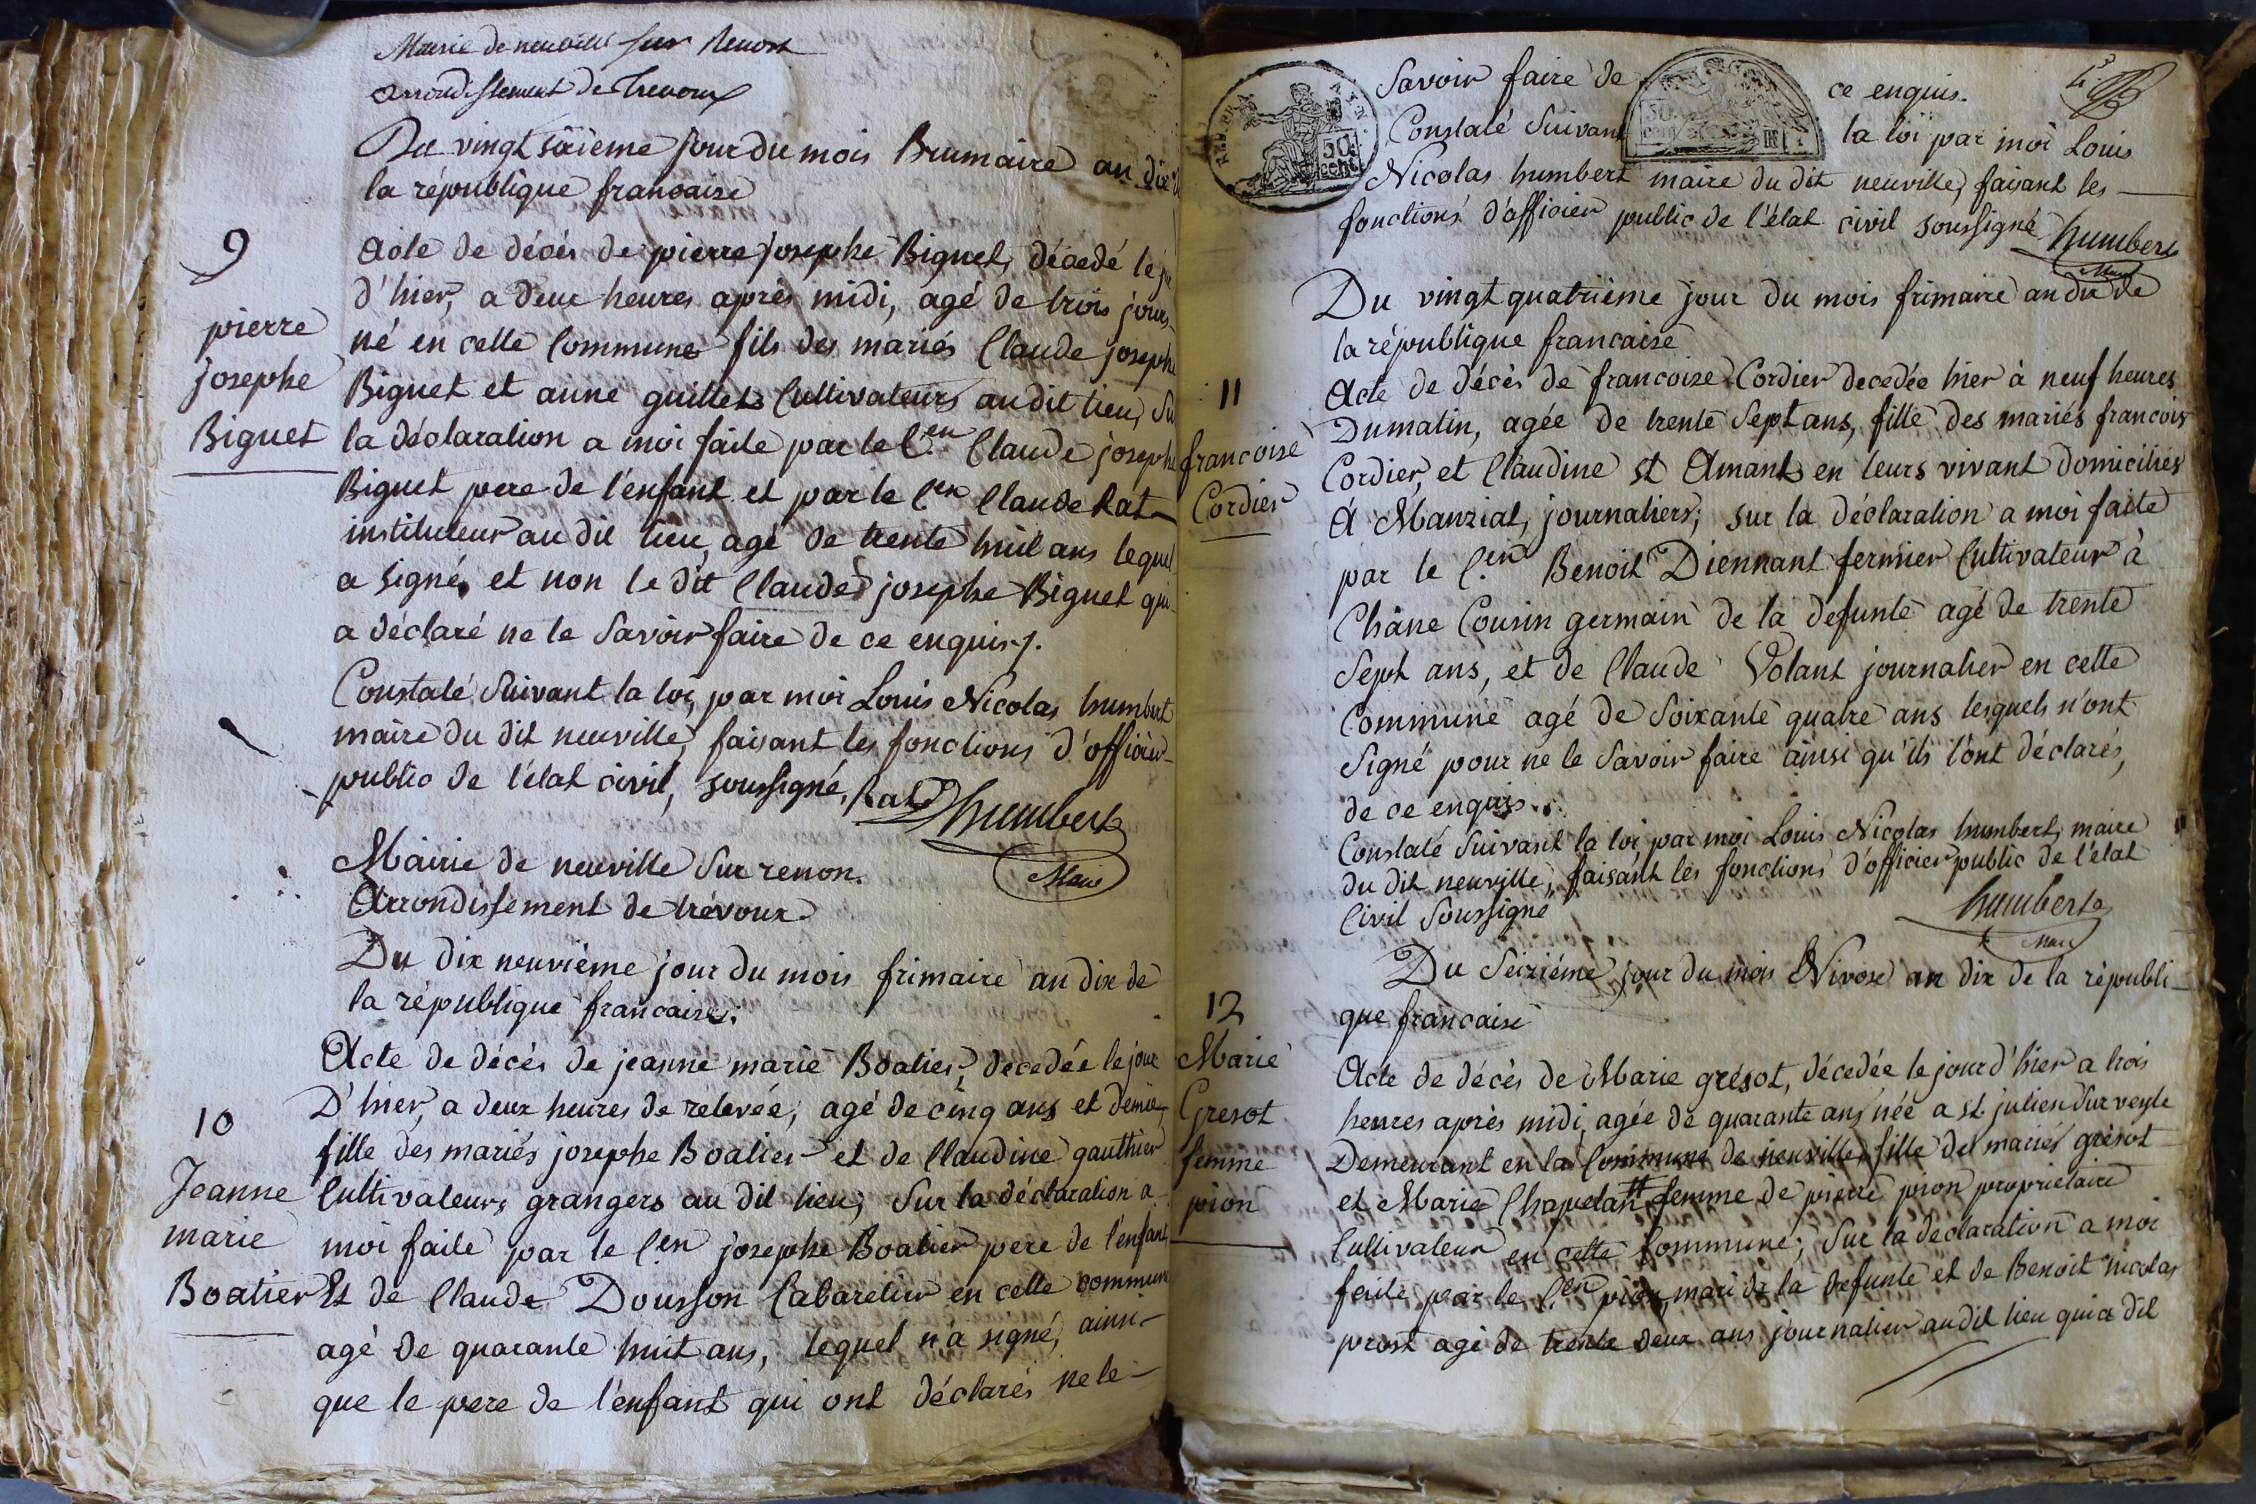 Mairie de neuville sur Renon
arrondissement de Trevoux
Du vingt sixieme jour du mois Brumaire an dix
la république francaise
9
pierre
josephe
Biguet
Acte de décés de pierre josephe Biguet, décedé le
d'hier, a deux heures aprés midi, agé de trois jours
né en cette Commune fils des mariés Claude josephe
Biguet et anne guillet Cultivateurs audit lieu, Su
la déclaration a moi faite par le C.en Claude josephe
Biguet pere de l'enfant et par le C.en Claude Rat
instituteur au dit lieu, agé de trente huit ans lequel
a signé, et non le dit Claude josephe Biguet qui
a déclaré ne le Savoir faire de ce enquis./.
Constaté Suivant la loi, par moi Louis Nicolas humbert
maire du dit neuville, faisant les fonctions d'officier
public de l'état civil, soussigné, Rat humbert
Maire
Mairie de neuville Sur renon.
Arrondissement de trévoux
Du dix neuviéme jour du mois frimaire an dix de
la république francaise;
10
Jeanne
marie
Boatier
Acte de décés de jeanne marie Boatier, decedée le jour
D'hier, a deux heures de relevée, agé de cinq ans et demie,
fille des mariés josephe Boatier et de Claudine gauthier
Cultivateurs grangers au dit lieu; Sur la déclaration a
moi faite par le C.en josephe Boatier pere de l'enfant
Et de Claude Dousson Cabaretier en cette commune
agé de quarante huit ans, lequel n'a signé, ainsi
que le pere de l'enfant qui ont déclarés ne le
REP. FRA
50
cent
Savoir faire de ce enquis.
Constaté Suivant la loi par moi Louis
Nicolas humbert maire du dit neuville, faisant les
fonctions d'officier public de l'état civil soussigné humbert
Maire
Du vingt quatriéme jour du mois frimaire an dix de
la république francaise
11
francoise
Cordier
Acte de décés de francoise Cordier decedée hier à neuf heures
Dumatin, agée de trente Sept ans, fille des mariés francois
Cordier, et Claudine St Amant en leurs vivant domiciliés
A Manziat, journaliers; sur la déclaration a moi faite
par le C.en Benoit Diennant fermier Cultivateur à
Châne Cousin germain de la defunte agé de trente
Sept ans, et de Claude Volant journalier en cette
Commune agé de Soixante quatre ans lesquels n'ont
Signé pour ne le Savoir faire ainsi qu'ils l'ont déclarés,
de ce enquis.
Constaté Suivant la loi par moi Louis Nicolas humbert, maire
du dit neuville, faisant les fonctions d'officier public de l'état
Civil Soussigné humbert
Maire
Du Seiziéme jour du mois Nivose an dix de la républi-
que francaise
12
Marie
Gresot
femme
pion
Acte de décés de Marie grésot, décedée le jour d'hier a trois
heures aprés midi, agée de quarante ans née a st. julien Sur veyle
Demeurant en la Commune de neuville, fille des mariés grésot
et Marie Chapelant femme de pierre pion propriétaire
Cultivateur en cette Commune; Sur la déclaration a moi
faite par le C.en pion, mari de la defunte et de Benoit nicolas
prost agé de trente deux ans journalier audit lieu qui a dit